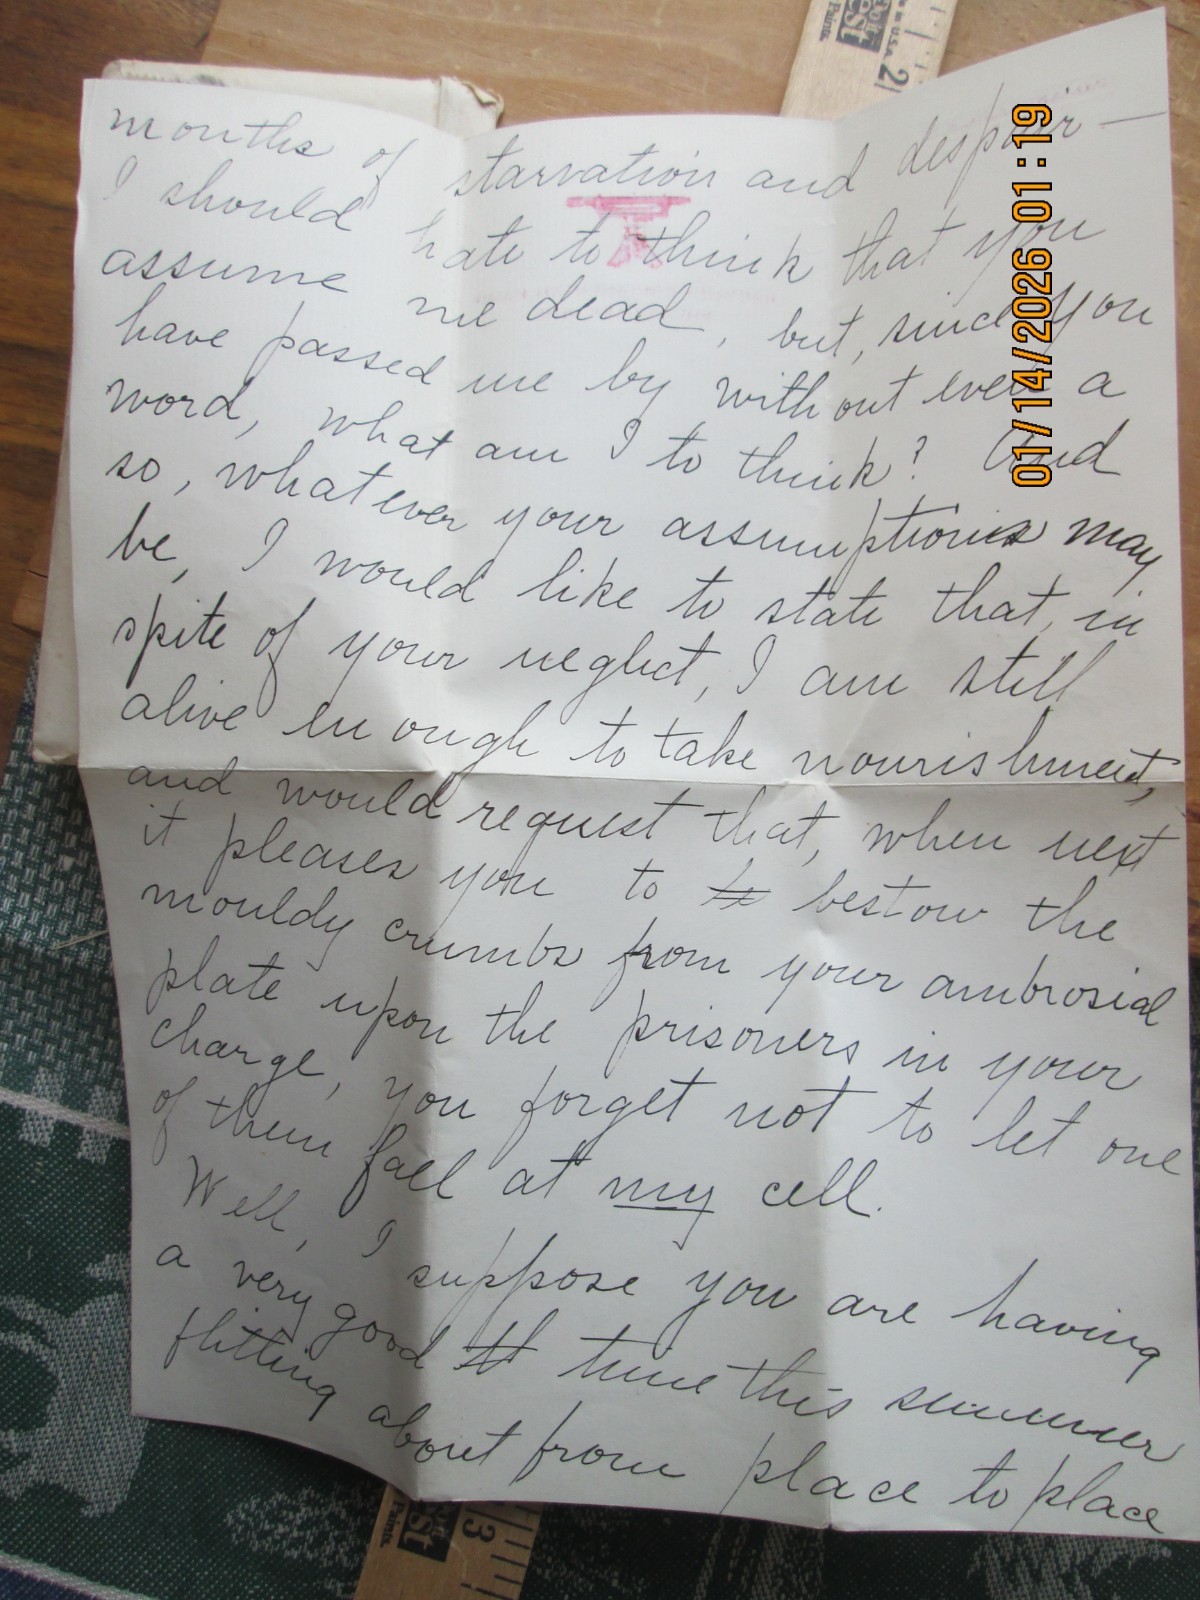 months of starvation and despair—
I should hate to think that you
assume me dead, but, since you
have passed me by without even a
word, what am I to think? And
so, whatever your assumptions may
be, I would like to state that, in
spite of your neglect, I am still
alive enough to take nourishment,
and would request that, when next
it pleases you to bestow the
mouldy crumbs from your ambrosial
plate upon the prisoners in your
charge, you forget not to let one
of them fall at my cell.
Well, I suppose you are having
a very good time this summer
flitting about from place to place
01/14/2026 01:19
Do it
Best
Paints.
U.S.A.
2
Best
Paints.
3